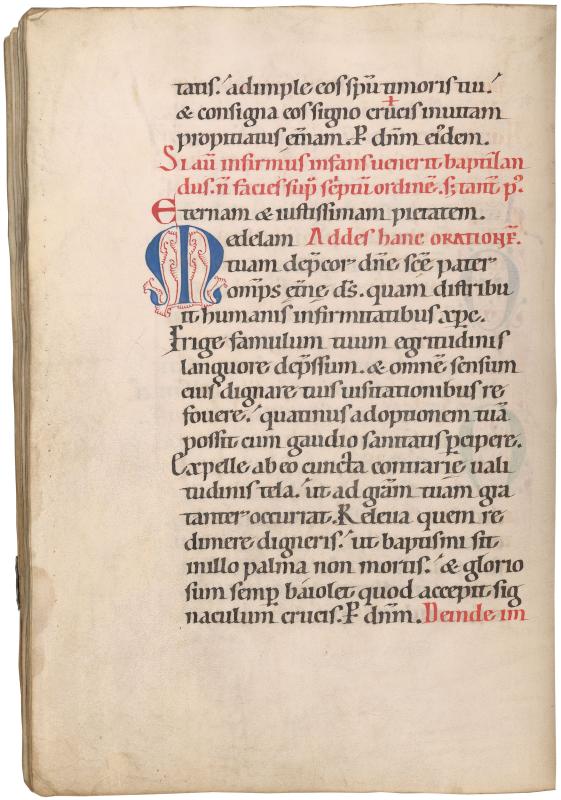 tatis. adimple eos sp̄u timoris tui.
& consigna eos signo crucis in uitam
propitiatus et̄nam. P dn̄m eiꝰdem.
Si aū infirmus infans uenerit baptizan
dus. n̄ facies sup̄ septū ordinē. s; tant̄ pꝰ.
Eternam & iustissimam pietatem.
Medelam Addes hanc orationē.
tuam dep̄cor dn̄e sc̄e pater
om̄ps et̄ne d̄s. quam distribu
it humanis infirmitatibus xp̄e.
Erige famulum tuum egritudinis
languore dep̄ssum. & omnē sensum
eius dignare tuis uisitationibus re
fouere. quatinus adoptionem tuā
possit cum gaudio sanitatis p̄cipere.
Expelle ab eo cuncta contrarię uali
tudinis tela. ut ad gr̄am tuam gra
tanter occurrat. Releua quem re
dimere digneris. ut baptismi sit
in illo palma non mortis. & glorio
sum semp̄ baiolet quod accepit sig
naculum crucis. P dn̄m. Deinde im